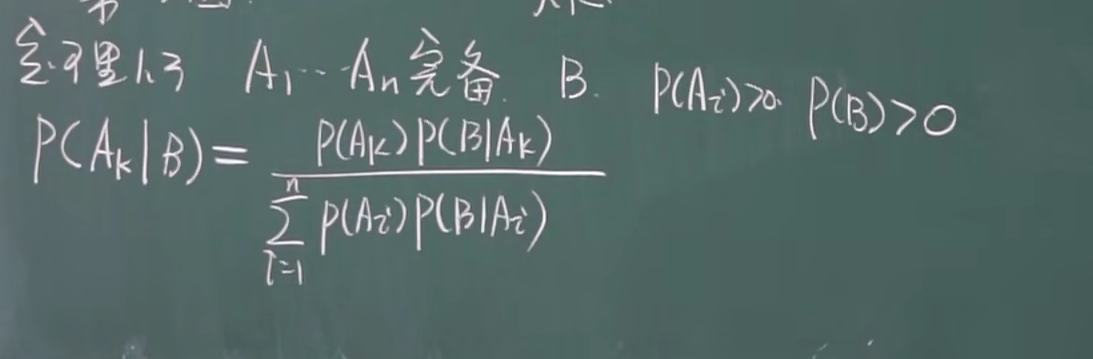 定理1.3 A₁…Aₙ完备. B. P(Aᵢ)>0. P(B)>0
P(Aₖ|B)= P(Aₖ)P(B|Aₖ)
n
∑ P(Aᵢ)P(B|Aᵢ)
i=1